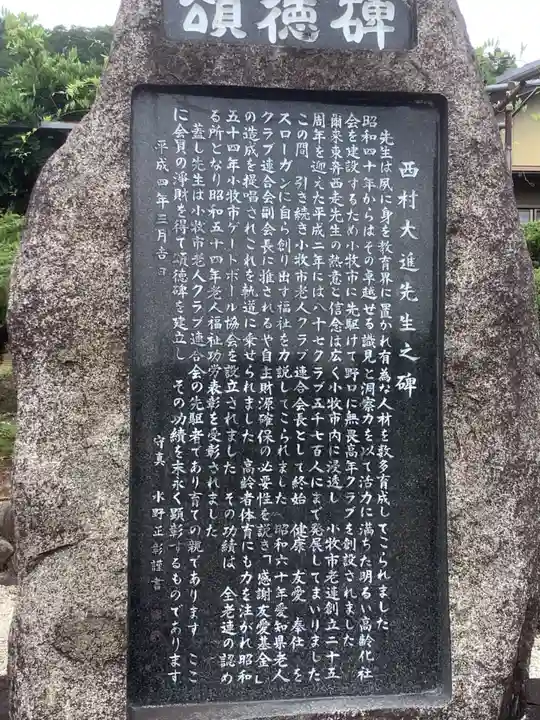 頌徳碑
西村大進先生之碑
先生は夙に身を教育界に置かれ有為な人材を数多育成してこられました
昭和四十年からはその卓越せる識見と洞察力を以て活力に満ちた明るい高齢化社
会を建設するため小牧市に先駆けて野口に無畏高年クラブを創設されました
爾来東奔西走先生の熱意と信念は広く小牧市内に浸透し 小牧市老連創立二十五
周年を迎えた平成二年には八十七クラブ五千七百人にまで発展してまいりました
この間 引き続き小牧市老人クラブ連合会長として終始 健康 友愛 奉仕 を
スローガンに自ら創り出す福祉を力説してこられました 昭和六十年愛知県老人
クラブ連合会副会長に推されるや自主財源確保の必要性を説き「感謝友愛基金」
の造成を提唱されこれを軌道に乗せられました 高齢者体育にも力を注がれ昭和
五十四年小牧市ゲートボール協会を設立されました その功績は 全老連の認め
る所となり昭和五十四年老人福祉功労表彰を受彰されました
蓋し先生は小牧市老人クラブ連合会の先駆者であり育ての親であります ここ
に会員の浄財を得て頌徳碑を建立し その功績を末永く顕彰するものであります
平成四年三月吉日
守真 水野正彰謹書